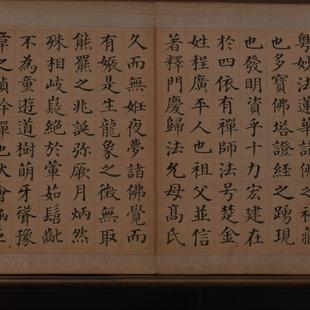 粵妙法蓮華諸佛之秘藏
也多寶佛塔證經之踴現
也發明資乎十力宏建在
於四依有禪師法号楚金
姓程廣平人也祖父並信
著釋門慶歸法允母髙氏
久而無妊夜夢諸佛覺而
有娠是生龍象之徵無取
熊羆之兆誕弥厥月炳然
殊相岐嶷絕於葷茹髫齔
不為童遊道樹萌牙聳豫
章之楨幹禪池畎澮涵巨